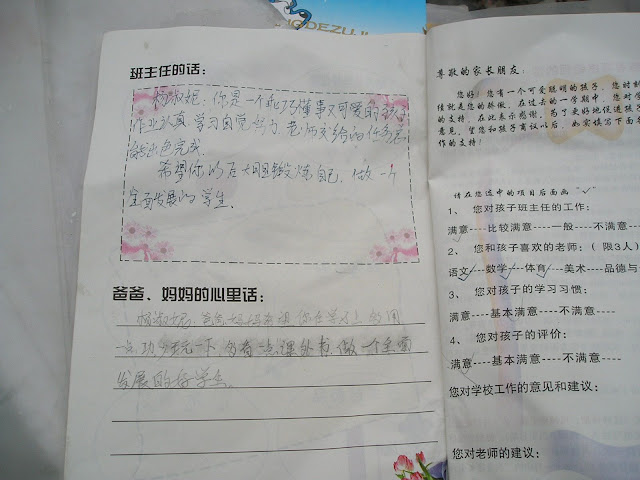 班主任的话：
杨淑妮：你是一个乖巧懂事又可爱的孩子
作业认真 学习自觉努力 老师交给的任务总
能出色完成。
希望你以后大胆锻炼自己，做一个
全面发展的学生。
爸爸、妈妈的心里话：
杨淑妮：爸爸妈妈希望你在学习上多用
一点功 多看一点课外书 做一个全面
发展的好学生。
尊敬的家长朋友：
您好！您有一个可爱聪明的孩子，您时刻
的支持，在此表示感谢。为了更好地促进孩
意见，望您和孩子商议以后，如实填写下面
作的支持！
请在您选中的项目后面画"√"
1、 您对孩子班主任的工作：
满意----比较满意----一般----不满意----
2、 您和孩子喜欢的老师：（限3人）
语文----数学----体育----美术----品德与
3、 您对孩子的学习习惯：
满意----基本满意----不满意----
4、 您对孩子的评价：
满意----基本满意----不满意----
您对学校工作的意见和建议：
您对老师的建议：